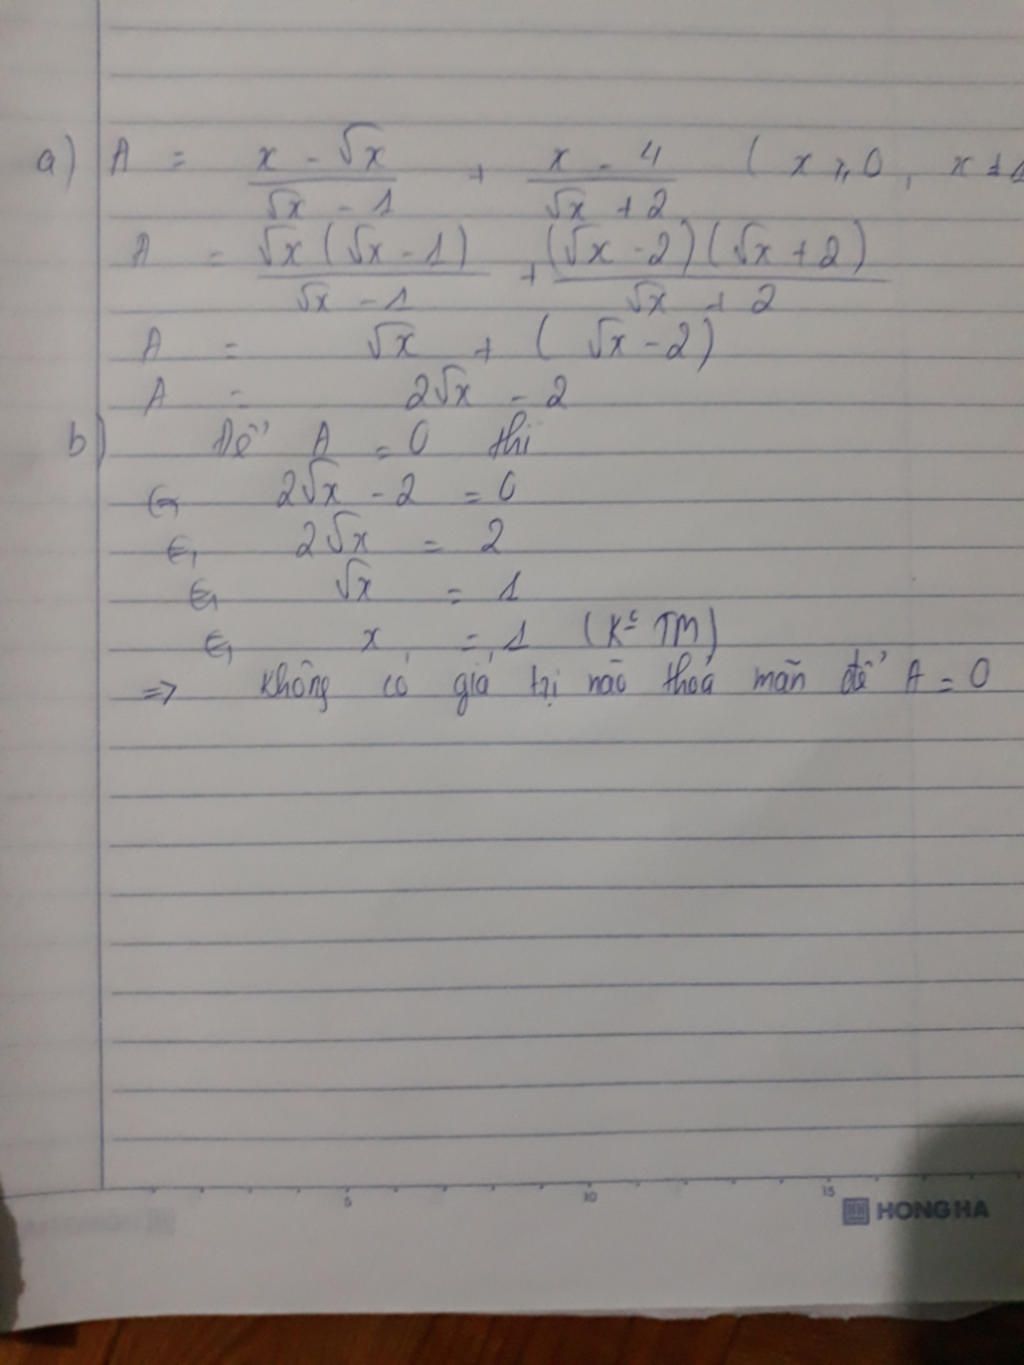 a) A = x - √x / √x - 1 + x - 4 / √x + 2 ( x ≥ 0, x ≠ 1
A = √x (√x - 1) / √x - 1 + (√x - 2)(√x + 2) / √x + 2
A = √x + ( √x - 2)
A = 2√x - 2
b) Để A = 0 thì
⇔ 2√x - 2 = 0
⇔ 2√x = 2
⇔ √x = 1
⇔ x = 1 (Ko TM)
=> không có giá trị nào thoả mãn để A = 0
5 10 15
HONG HA